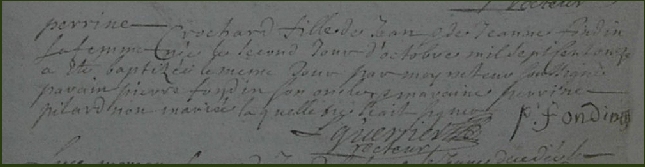 recteur
perrine rochard fille de Jean & de Jeanne fondin
sa femme née le second Jour d'octobre mil sept cent onze
a été baptizée le meme Jour par moy recteur soussigné
parain pierre fondin son oncle & maraine perrine
pilard non mariée laquelle ne sçait signer
p: fondin
Guerrier
recteur